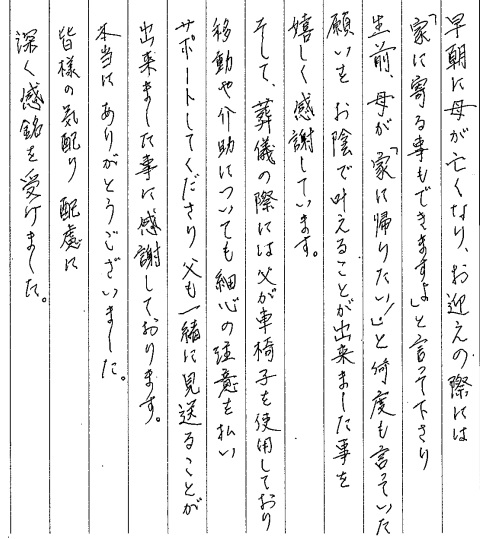 早朝に母が亡くなり、お迎えの際には
「家に寄る事もできますよ」と言って下さり
生前、母が「家に帰りたい！」と何度も言っていた
願いを お陰で叶えることが出来ました事を
嬉しく感謝しています。
そして、葬儀の際には父が車椅子を使用しており
移動や介助についても細心の注意を払い
サポートしてくださり 父も一緒に見送ることが
出来ました事に感謝しております。
本当に ありがとうございました。
皆様の気配り 配慮に
深く感銘を受けました。